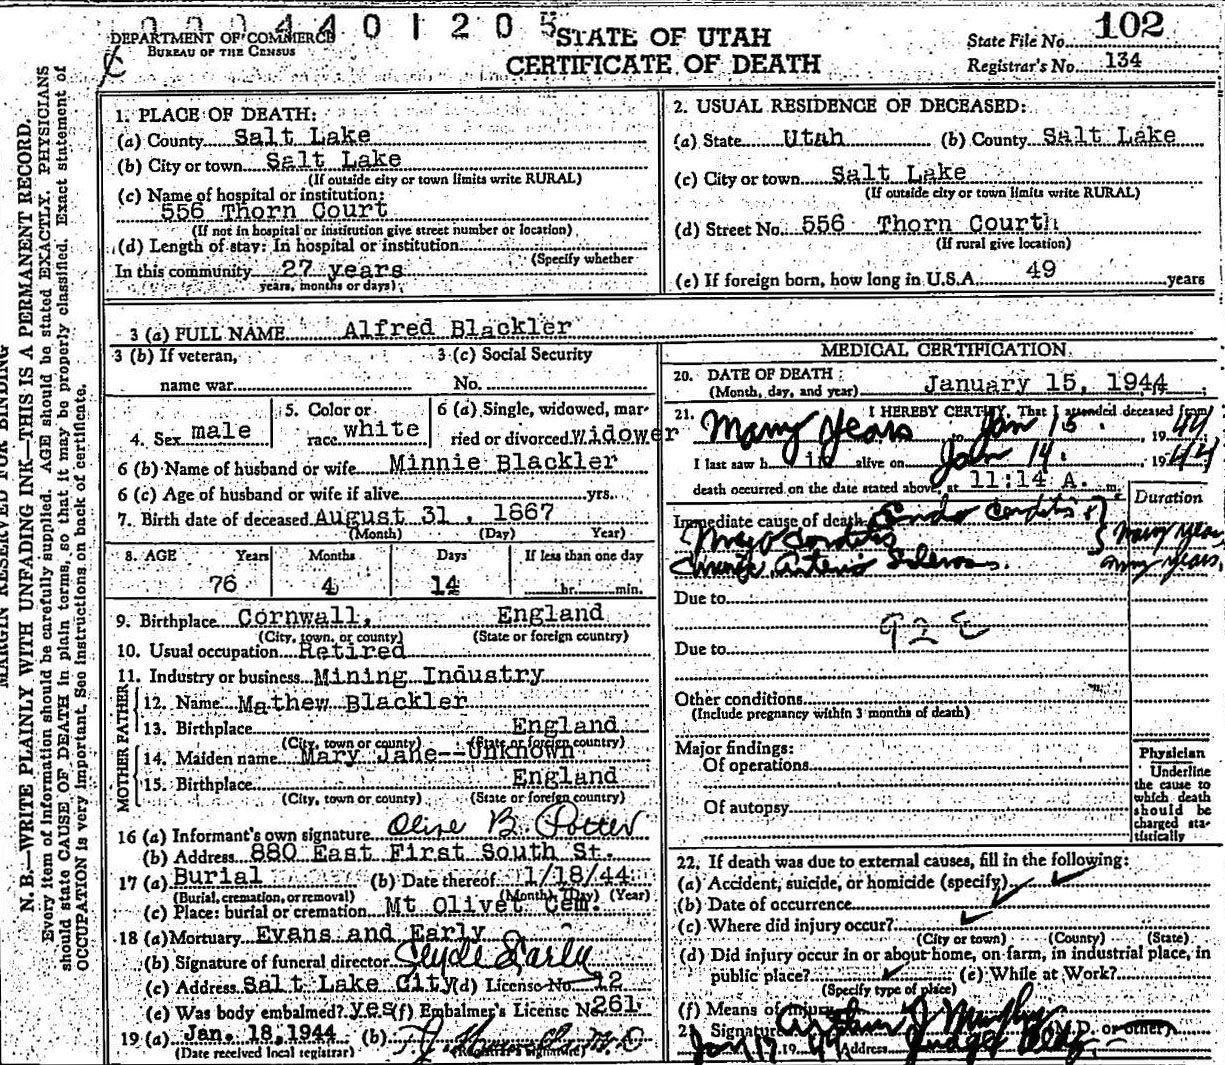 000440 1 205
DEPARTMENT OF COMMERCE
BUREAU OF THE CENSUS
STATE OF UTAH
CERTIFICATE OF DEATH
State File No. 102
Registrar's No. 134
MARGIN RESERVED FOR BINDING
N. B.—WRITE PLAINLY WITH UNFADING INK—THIS IS A PERMANENT RECORD.
Every item of information should be carefully supplied. AGE should be stated EXACTLY. PHYSICIANS
should state CAUSE OF DEATH in plain terms, so that it may be properly classified. Exact statement of
OCCUPATION is very important. See instructions on back of certificate.
1. PLACE OF DEATH:
(a) County Salt Lake
(b) City or town Salt Lake
(If outside city or town limits write RURAL)
(c) Name of hospital or institution:
556 Thorn Court
(If not in hospital or institution give street number or location)
(d) Length of stay: In hospital or institution
(Specify whether
In this community 27 years
years, months or days)
2. USUAL RESIDENCE OF DECEASED:
(a) State Utah (b) County Salt Lake
(c) City or town Salt Lake
(If outside city or town limits write RURAL)
(d) Street No. 556 Thorn Courth
(If rural give location)
(e) If foreign born, how long in U.S.A. 49 years
3 (a) FULL NAME Alfred Blackler
3 (b) If veteran,
name war
3 (c) Social Security
No.
4. Sex male
5. Color or
race white
6 (a) Single, widowed, mar-
ried or divorced widower
6 (b) Name of husband or wife Minnie Blackler
6 (c) Age of husband or wife if alive yrs.
7. Birth date of deceased August 31, 1867
(Month) (Day) Year)
8. AGE Years Months Days If less than one day
76 4 14 hr. min.
9. Birthplace Cornwall, England
(City, town, or county) (State or foreign country)
10. Usual occupation Retired
11. Industry or business Mining Industry
FATHER
12. Name Mathew Blackler
13. Birthplace England
(City, town or county) (State or foreign country)
MOTHER
14. Maiden name Mary Jane--Unknown
15. Birthplace England
(City, town or county) (State or foreign country)
16 (a) Informant's own signature Olive B. Potter
(b) Address 880 East First South St.
17 (a) Burial (b) Date thereof 1/18/44
(Burial, cremation, or removal) (Month) (Day) (Year)
(c) Place: burial or cremation Mt Olivet Cem.
18 (a) Mortuary Evans and Early
(b) Signature of funeral director Clyde Early
(c) Address Salt Lake City (d) License No. 12
(e) Was body embalmed? yes (f) Embalmer's License No 261
19 (a) Jan. 18, 1944 (b)
(Date received local registrar) (Registrar's signature)
MEDICAL CERTIFICATION
20. DATE OF DEATH:
(Month, day, and year) January 15, 1944
21. I HEREBY CERTIFY, That I attended deceased from
Many Years to Jan 15. 1944
I last saw h im alive on Jan 14. 1944
death occurred on the date stated above, at 11:14 A. m.
Duration
Immediate cause of death Endo Carditis &
Myo Carditis many years
Chronic Arterio Sclerosis. many years.
Due to
92 E
Due to
Other conditions
(Include pregnancy within 3 months of death)
Major findings:
Of operations
Of autopsy
Physician
Underline
the cause to
which death
should be
charged sta-
tistically
22. If death was due to external causes, fill in the following:
(a) Accident, suicide, or homicide (specify)
(b) Date of occurrence
(c) Where did injury occur?
(City or town) (County) (State)
(d) Did injury occur in or about home, on farm, in industrial place, in
public place? (e) While at Work?
(Specify type of place)
(f) Means of injury
23 Signature Arthur J Murphy M.D. or other)
Jan 17 1944 Address Judge Bldg.